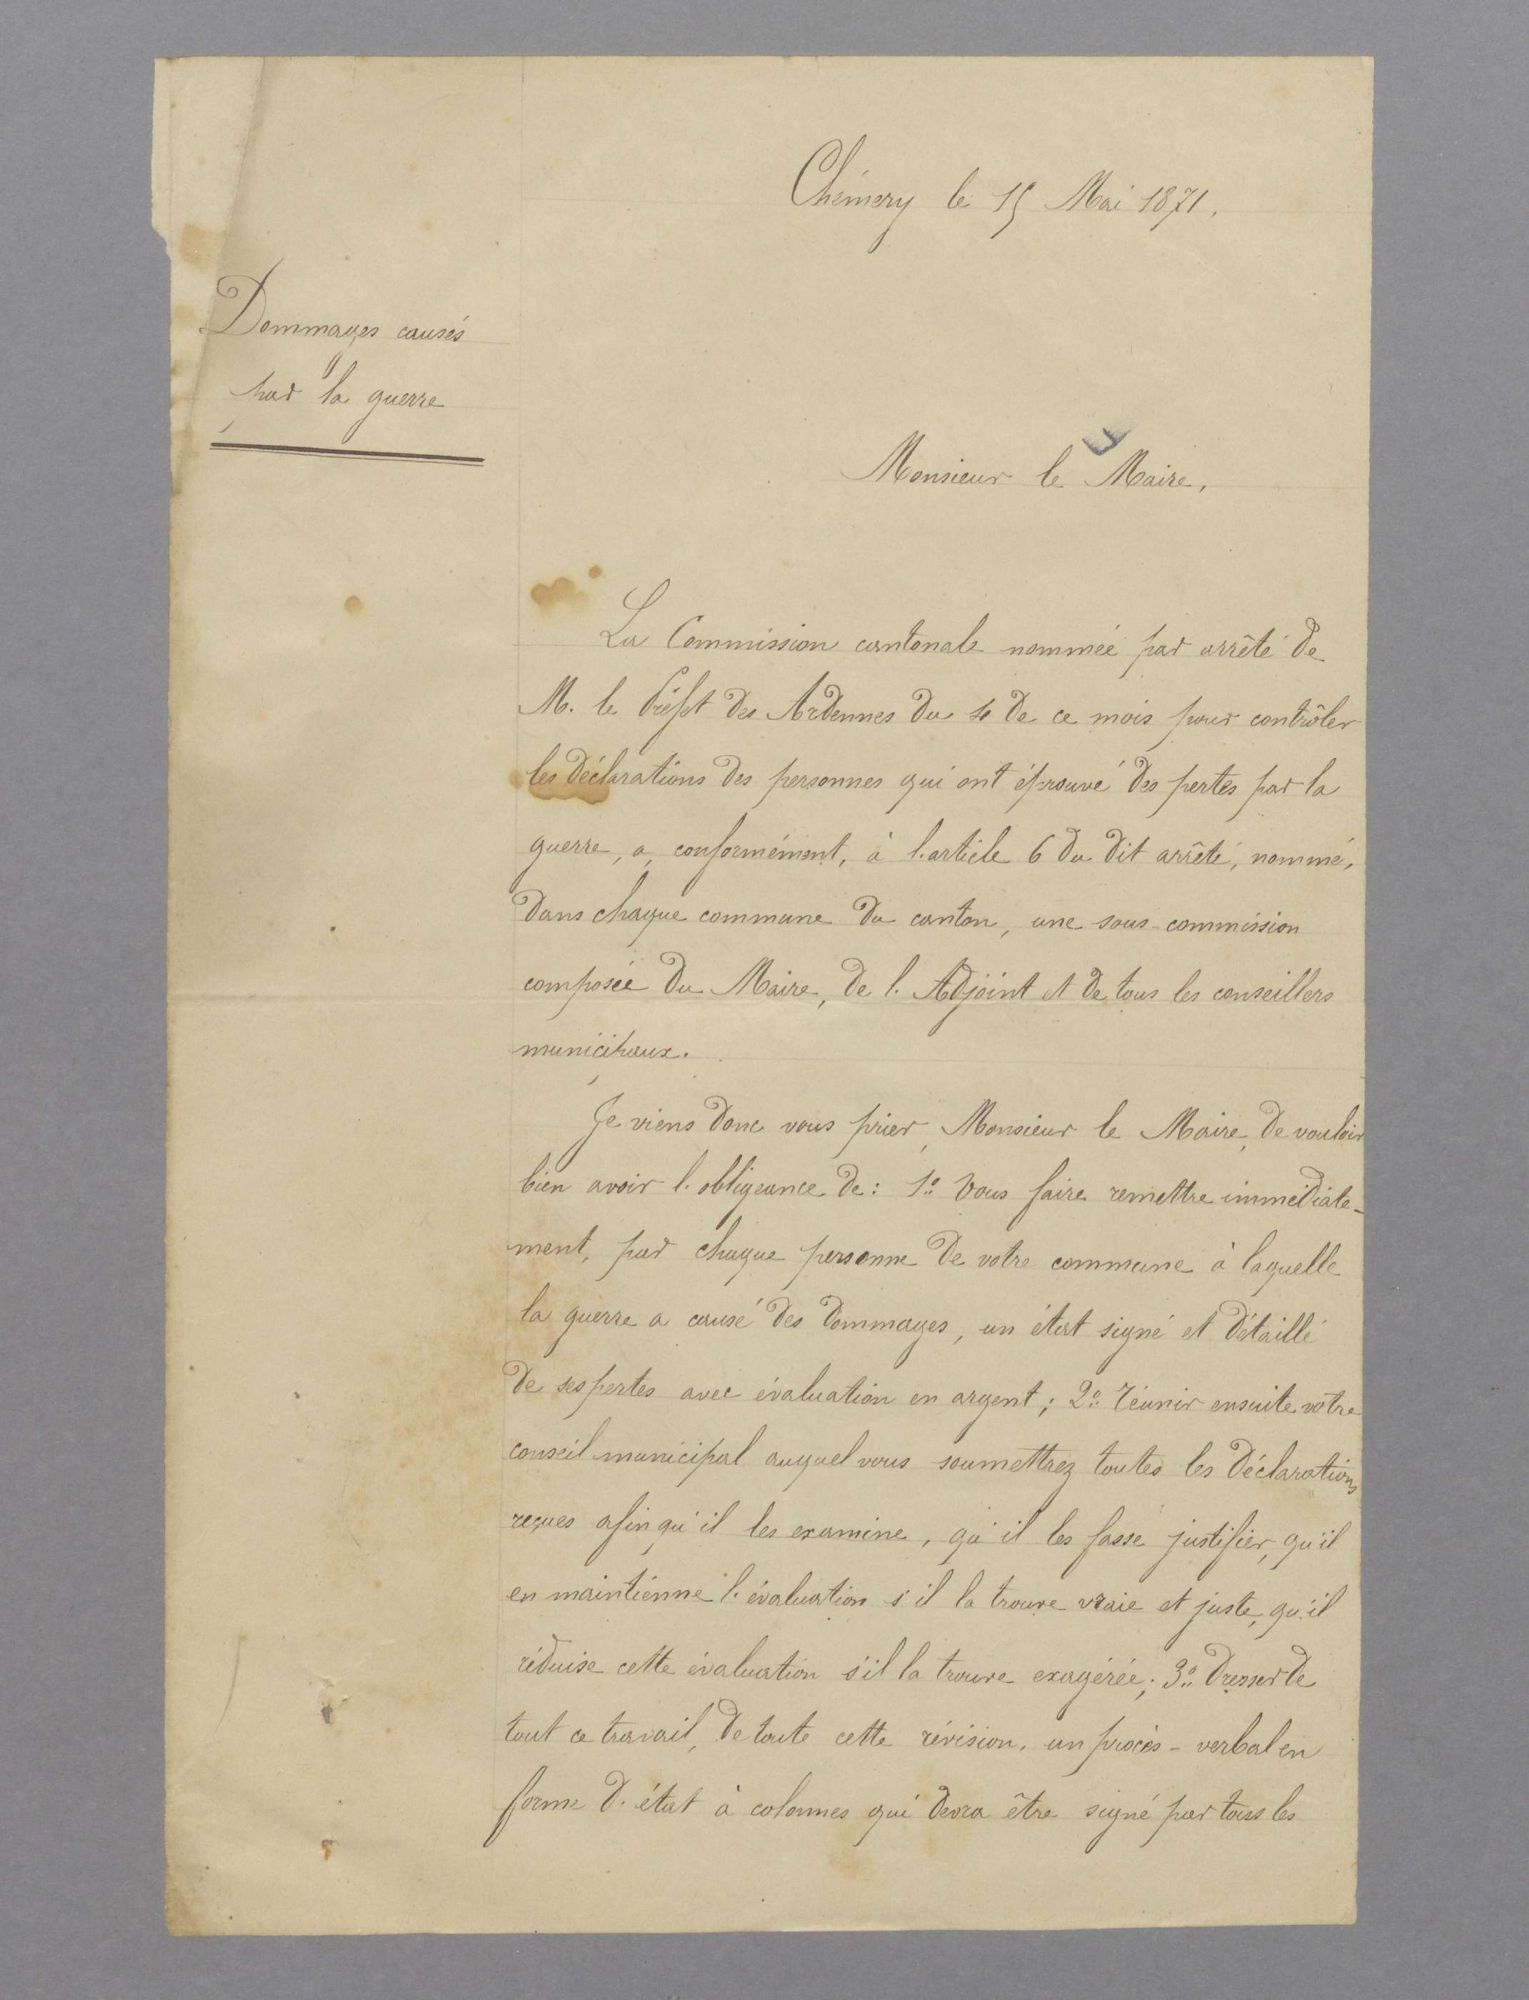 Chémery le 15 Mai 1871.
Dommages causés
par la guerre
Monsieur le Maire,
La Commission cantonale nommée par arrêté de
M. le Préfet des Ardennes du 4 de ce mois pour contrôler
les déclarations des personnes qui ont éprouvé des pertes par la
guerre, a, conformément, à l'article 6 du dit arrêté, nommé,
dans chaque commune du canton, une sous-commission
composée du Maire, de l'Adjoint et de tous les conseillers
municipaux.
Je viens donc vous prier, Monsieur le Maire, de vouloir
bien avoir l'obligeance de : 1º Vous faire remettre immédiate-
ment, par chaque personne de votre commune à laquelle
la guerre a causé des dommages, un état signé et détaillé
de ses pertes avec évaluation en argent ; 2º réunir ensuite votre
conseil municipal auquel vous soumettrez toutes les déclarations
reçues afin qu'il les examine, qu'il les fasse justifier, qu'il
en maintienne l'évaluation s'il la trouve vraie et juste, qu'il
réduise cette évaluation s'il la trouve exagérée ; 3º Dresser de
tout ce travail, de toute cette révision, un procès-verbal en
forme d'état à colonnes qui devra être signé par tous les